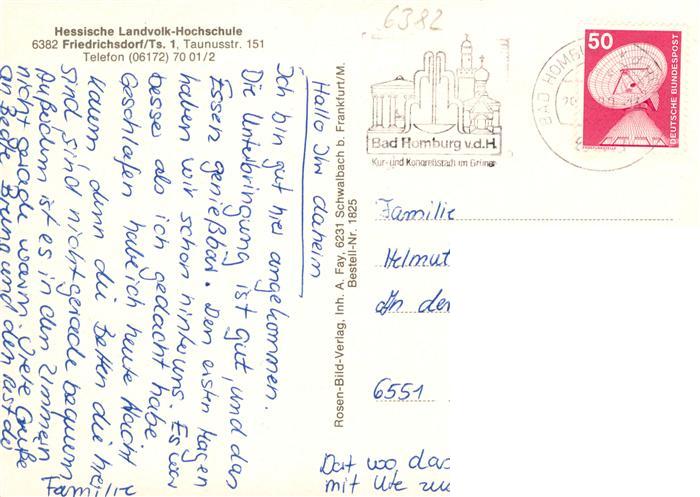 Hessische Landvolk-Hochschule
6382 Friedrichsdorf/Ts. 1, Taunusstr. 151
Telefon (06172) 70 01/2
Hallo Ihr daheim
Ich bin gut hier angekommen.
Die Unterbringung ist gut, und das
Essen genießbar. Den ersten Magen
haben wir schon hinter uns. Es war
besse als ich gedacht habe.
Geschlafen habe ich heute Nacht
kaum, denn die Betten die hier
sind, sind nicht gerade bequem
Außerdem ist es in den Zimmern
nicht gerade warm. Viele Grüße
an Beate, Bruno und den Rest der
Familie
Rosen-Bild-Verlag, Inh. A. Fay, 6231 Schwalbach b. Frankfurt/M.
Bestell-Nr. 1825
6382
Bad Homburg v.d.H.
Kur- und Kongreßstadt im Grünen
BAD HOMBURG
50
DEUTSCHE BUNDESPOST
Familie
Helmut
An der
6551
Dat wo, das
mit Ute